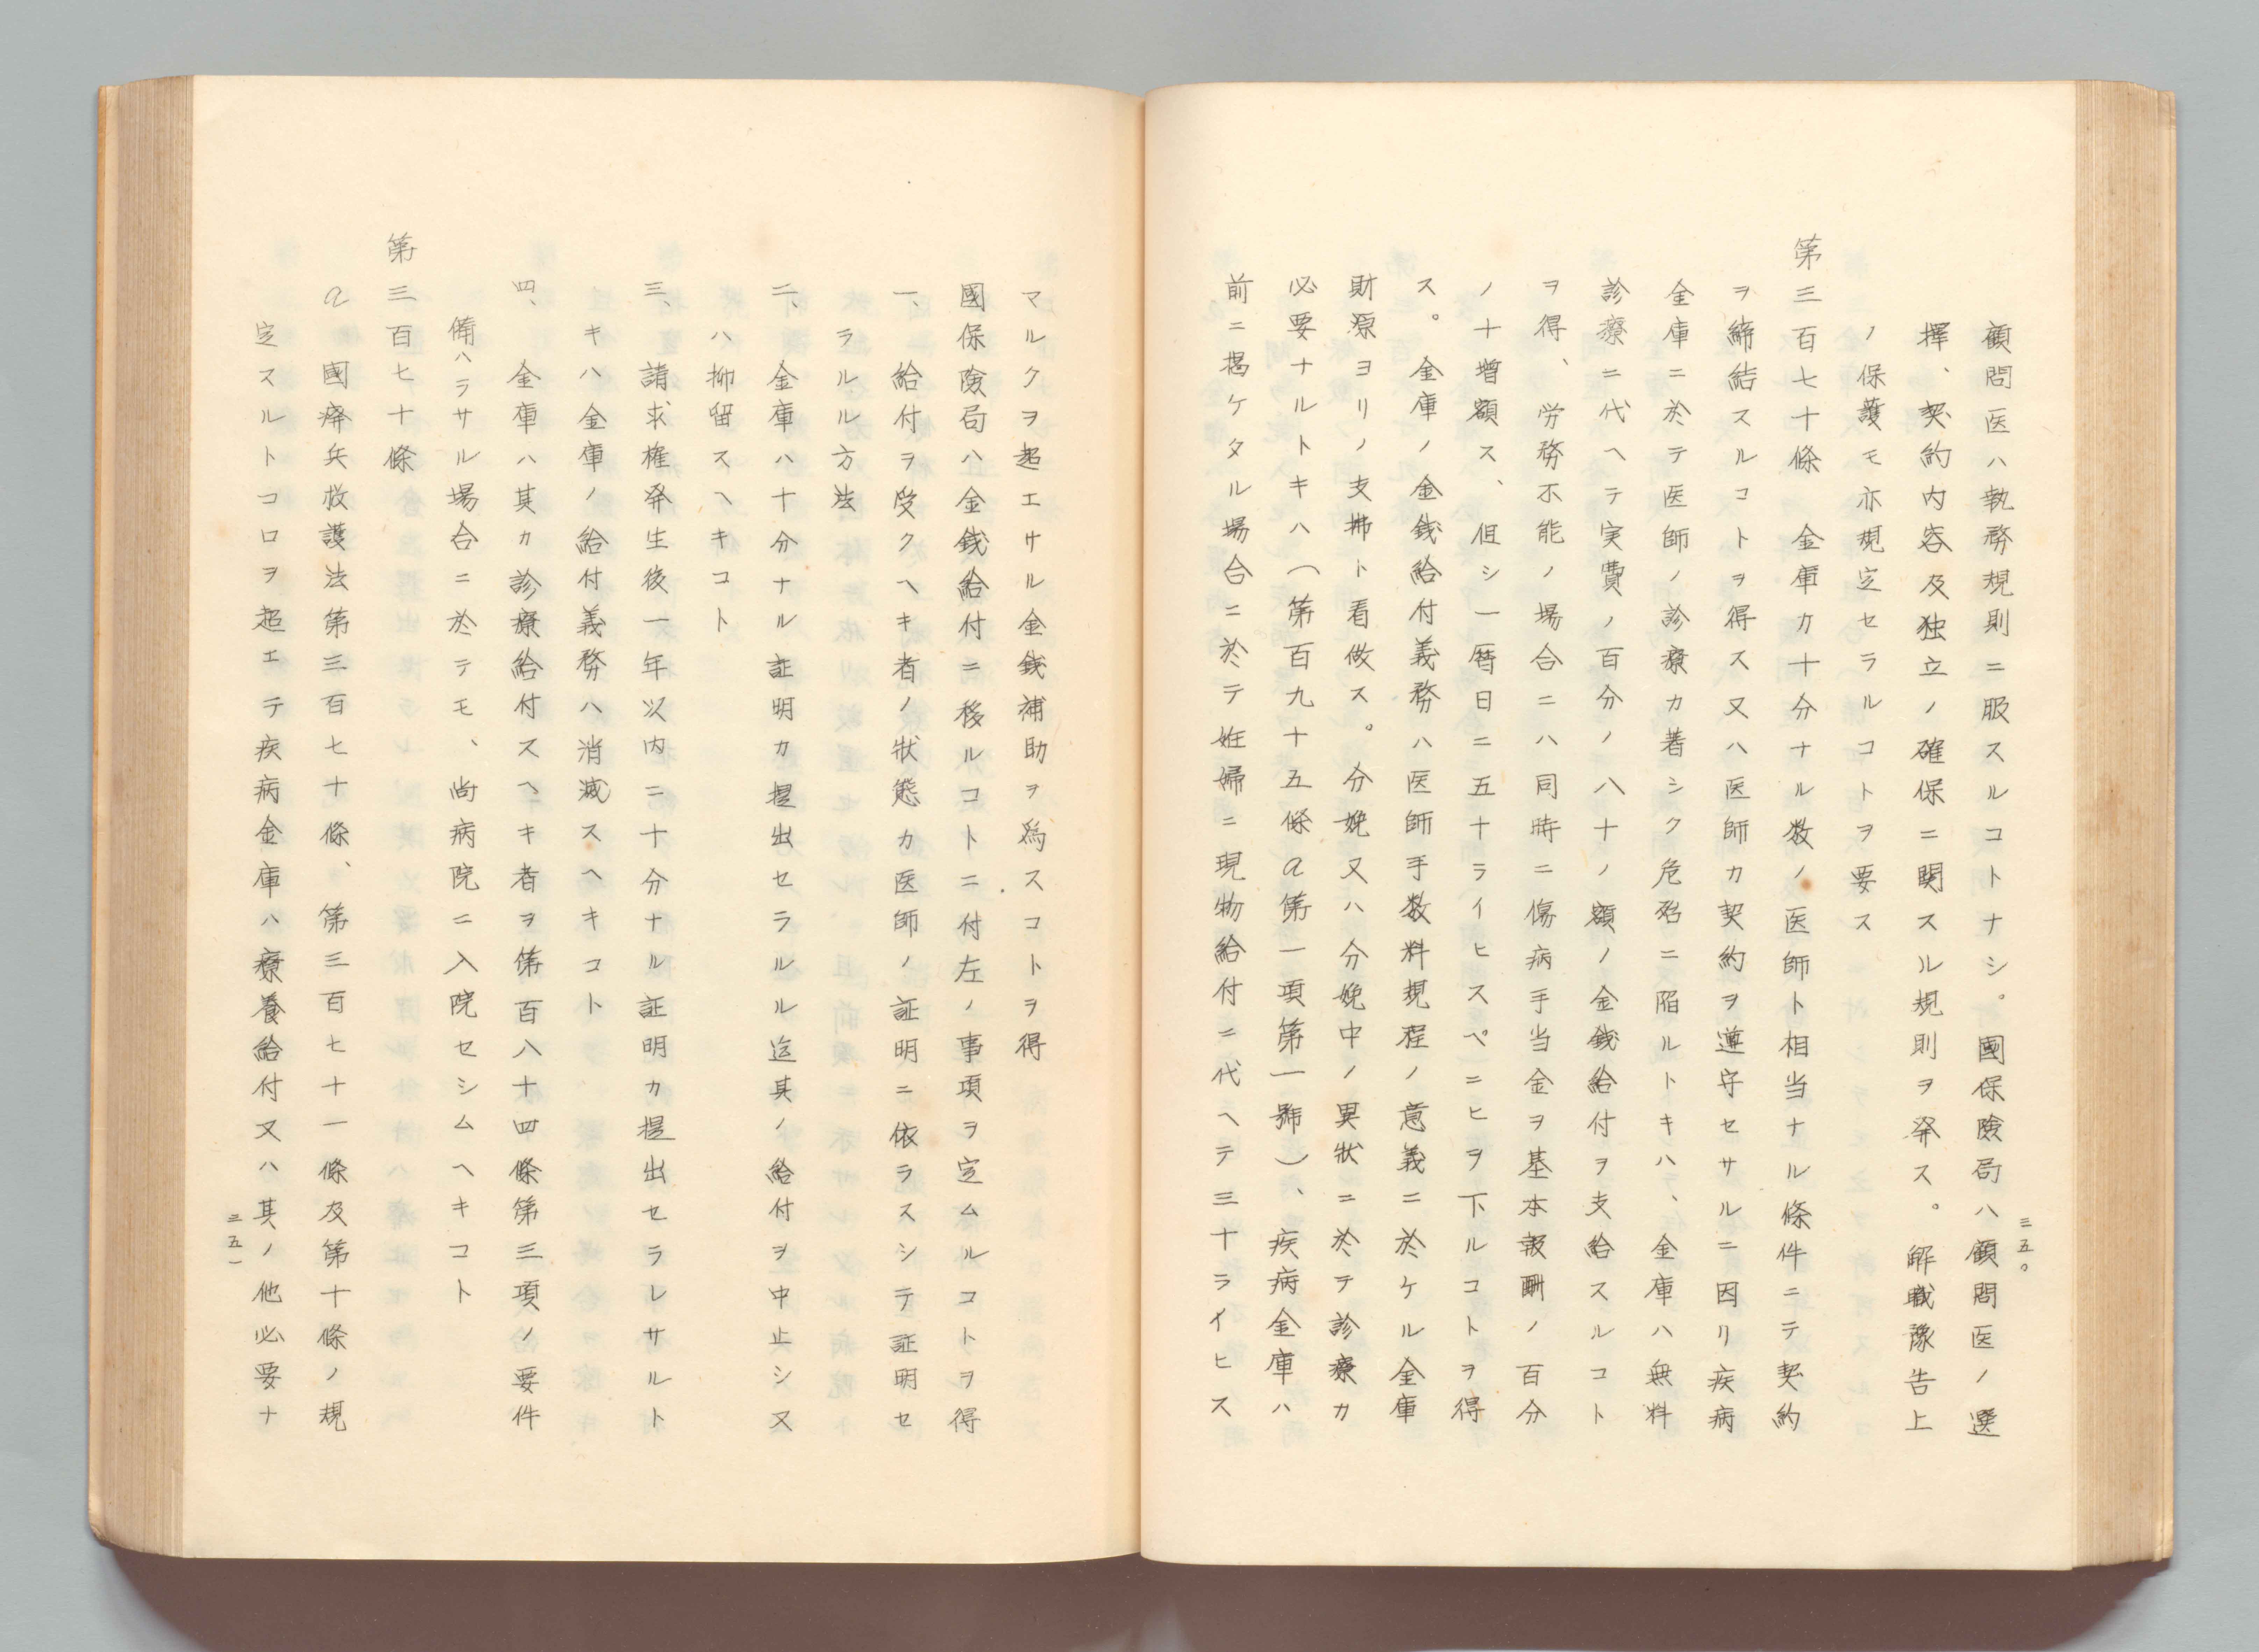 三五〇
顧問医ハ執務規則ニ服スルコトナシ。國保險局ハ顧問医ノ選
擇、契約内容及独立ノ確保ニ関スル規則ヲ発ス。解職豫告上
ノ保護モ亦規定セラルコトヲ要ス
第三百七十條 金庫カ十分ナル数ノ医師ト相当ナル條件ニテ契約
ヲ締結スルコトヲ得ス又ハ医師カ契約ヲ遵守セサルニ因リ疾病
金庫ニ於テ医師ノ診療カ著シク危殆ニ陥ルトキハ、金庫ハ無料
診療ニ代ヘテ実費ノ百分ノ八十ノ額ノ金銭給付ヲ支給スルコト
ヲ得、労務不能ノ場合ニハ同時ニ傷病手当金ヲ基本報酬ノ百分
ノ十増額ス、但シ一暦日ニ五十ライヒスペニヒヲ下ルコトヲ得
ス。金庫ノ金銭給付義務ハ医師手数料規程ノ意義ニ於ケル金庫
財源ヨリノ支拂ト看做ス。分娩又ハ分娩中ノ異状ニ於テ診療カ
必要ナルトキハ(第百九十五條a第一項第一號)、疾病金庫ハ
前ニ掲ケタル場合ニ於テ妊婦ニ現物給付ニ代ヘテ三十ライヒス
マルクヲ超エサル金銭補助ヲ為スコトヲ得
國保險局ハ金銭給付ニ移ルコトニ付左ノ事項ヲ定ムルコトヲ得
一、給付ヲ受クヘキ者ノ狀態カ医師ノ証明ニ依ラスシテ証明セ
ラルル方法
二、金庫ハ十分ナル証明カ提出セラルル迄其ノ給付ヲ中止シ又
ハ抑留スヘキコト
三、請求権発生後一年以内ニ十分ナル証明カ提出セラレサルト
キハ金庫ノ給付義務ハ消滅スヘキコト
四、金庫ハ其カ診療給付スヘキ者ヲ第百八十四條第三項ノ要件
備ハラサル場合ニ於テモ、尚病院ニ入院セシムヘキコト
第三百七十條
a 國癈兵救護法第三百七十條、第三百七十一條及第十條ノ規
定スルトコロヲ超エテ疾病金庫ハ療養給付又ハ其ノ他必要ナ
三五一